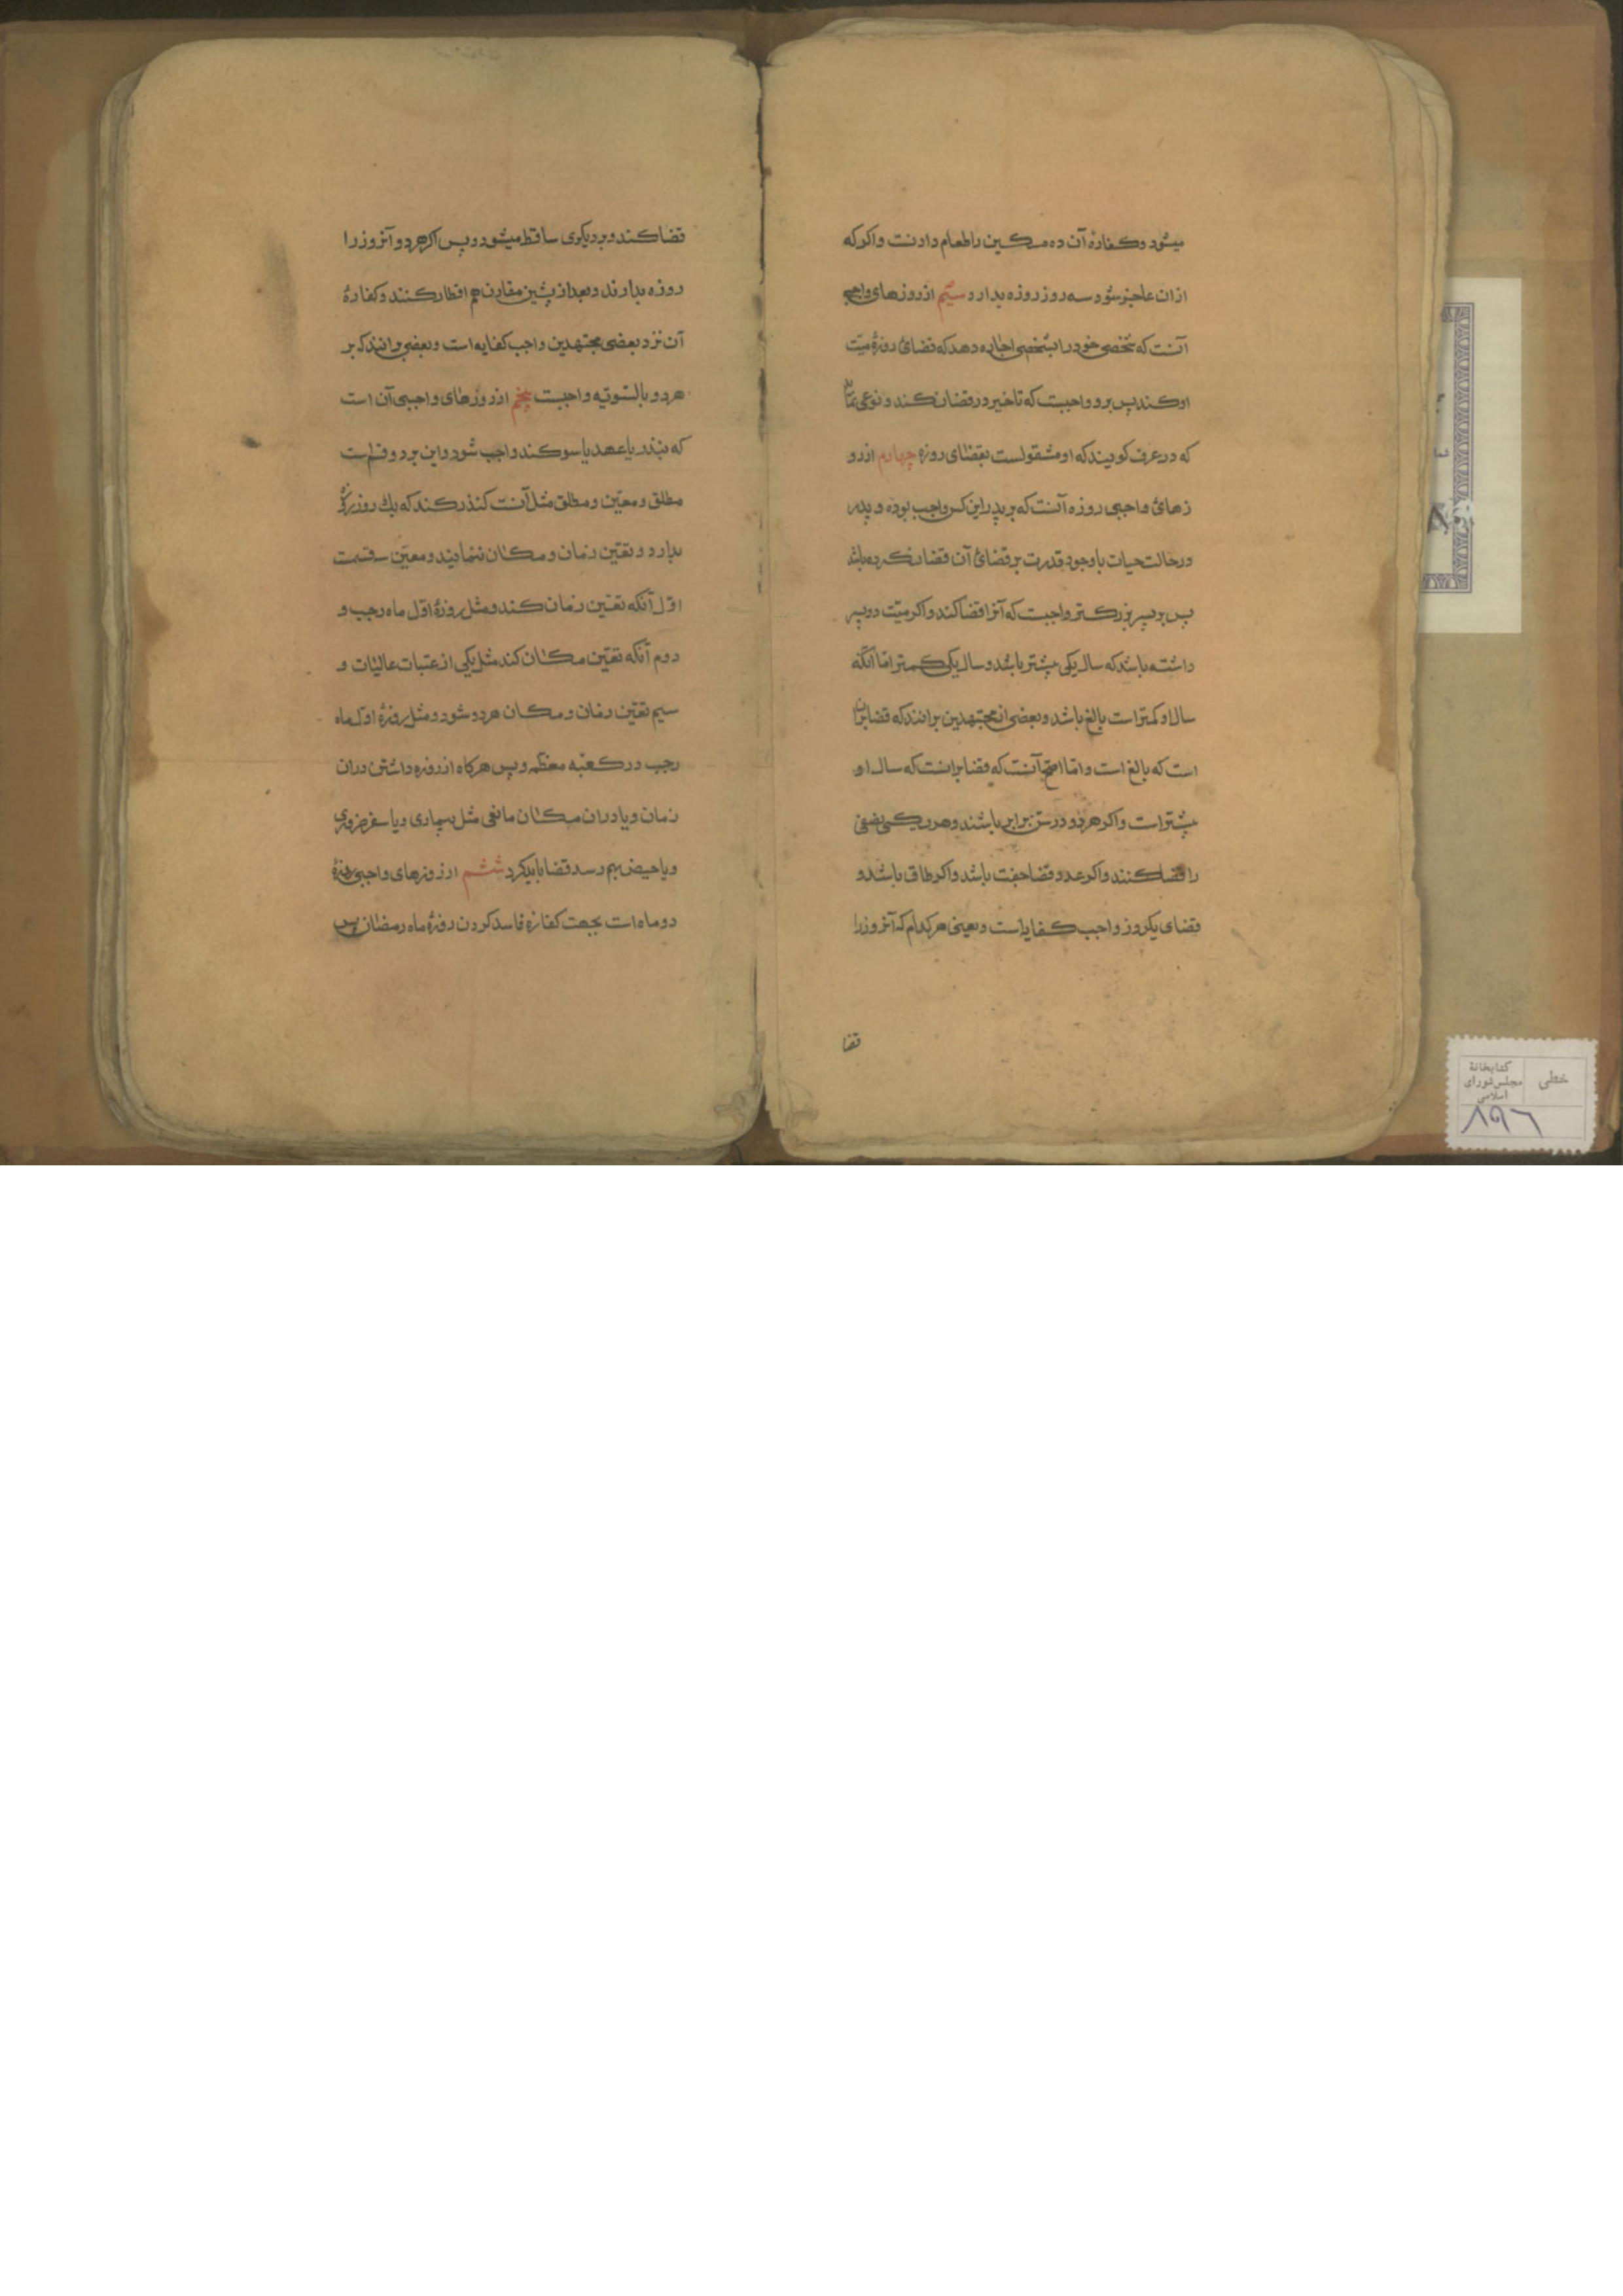 میشود وکفارهٔ آن ده مسکین را طعام دادنست واکر که
ازان عاجز شود سه روز روزه بدارد سیّم از روزهای واجبی
آنست که شخصی خود را بشخصی اجاره دهد که قضائ روزهٔ میّت
او کند پس برو واجبست که تاخیر در قضا نکند ونوعی نماید
که در عرف کویند که او مشغولست بقضای روزه چهارم ازرو
زهائ واجبی روزه آنست که بر پدر این کس واجب بوده و پدر
در حالت حیات با وجود قدرت بر قضائ آن قضا نکرده باشد
پس بر پسر بزرکتر واجبست که آنرا قضا کند واکر میّت دو پسر
داشته باشد که سال یکی بیشتر باشد وسال یکی کمتر امّا آنکه
سال او کمتر است بالغ باشد وبعضی از مجتهدین برانند که قضا بران
است که بالغ است وامّا اصحّ آنست که قضا برانست که سال او
بیشتر است واکر هر دو در سن برابر باشند وهر یکی نصفی
را قضا کنند واکر عدد قضا جفت باشد واکر طاق باشد و
قضای یکروز واجب کفایاست ویعنی هر کدام که آنروز را
قضا
قضا کند وبر دیکری ساقط میشود وپس اکر هر دو آنروز را
روزه بدارند وبعد از پیشین مقارن هم افطار کنند وکفارهٔ
آن نزد بعضی مجتهدین واجب کفایه است وبعضی برانند که بر
هر دو بالسّویّه واجبست پنجم از روزهای واجبی آن است
که بنذر یا عهد یا سوکند واجب شود واین بر دو قسم است
مطلق ومعیّن ومطلق مثل آنست که نذر کند که یك روز روزهٔ
بدارد وتعیّن زمان ومکان ننمایند ومعیّن سه قسمت
اوّل آنکه تعیّن زمان کند ومثل روزهٔ اوّل ماه رجب و
دوم آنکه تعیّن مکان کند مثل یکی از عتبات عالیات و
سیم تعیّن زمان ومکان هر دو شود ومثل روزهٔ اوّل ماه
رجب در کعبه معظّمه وپس هرکاه از روزه داشتن دران
زمان ویا دران مکان مانعی مثل بیماری ویا سفر ضروری
ویا حیض بهم رسد قضا باید کرد ششم از روزهای واجبی روزهٔ
دو ماه است بجهت کفارهٔ فاسد کردن روزهٔ ماه رمضان پس
خطی
کتابخانهٔ
مجلس شورای
اسلامی
۸۹۶